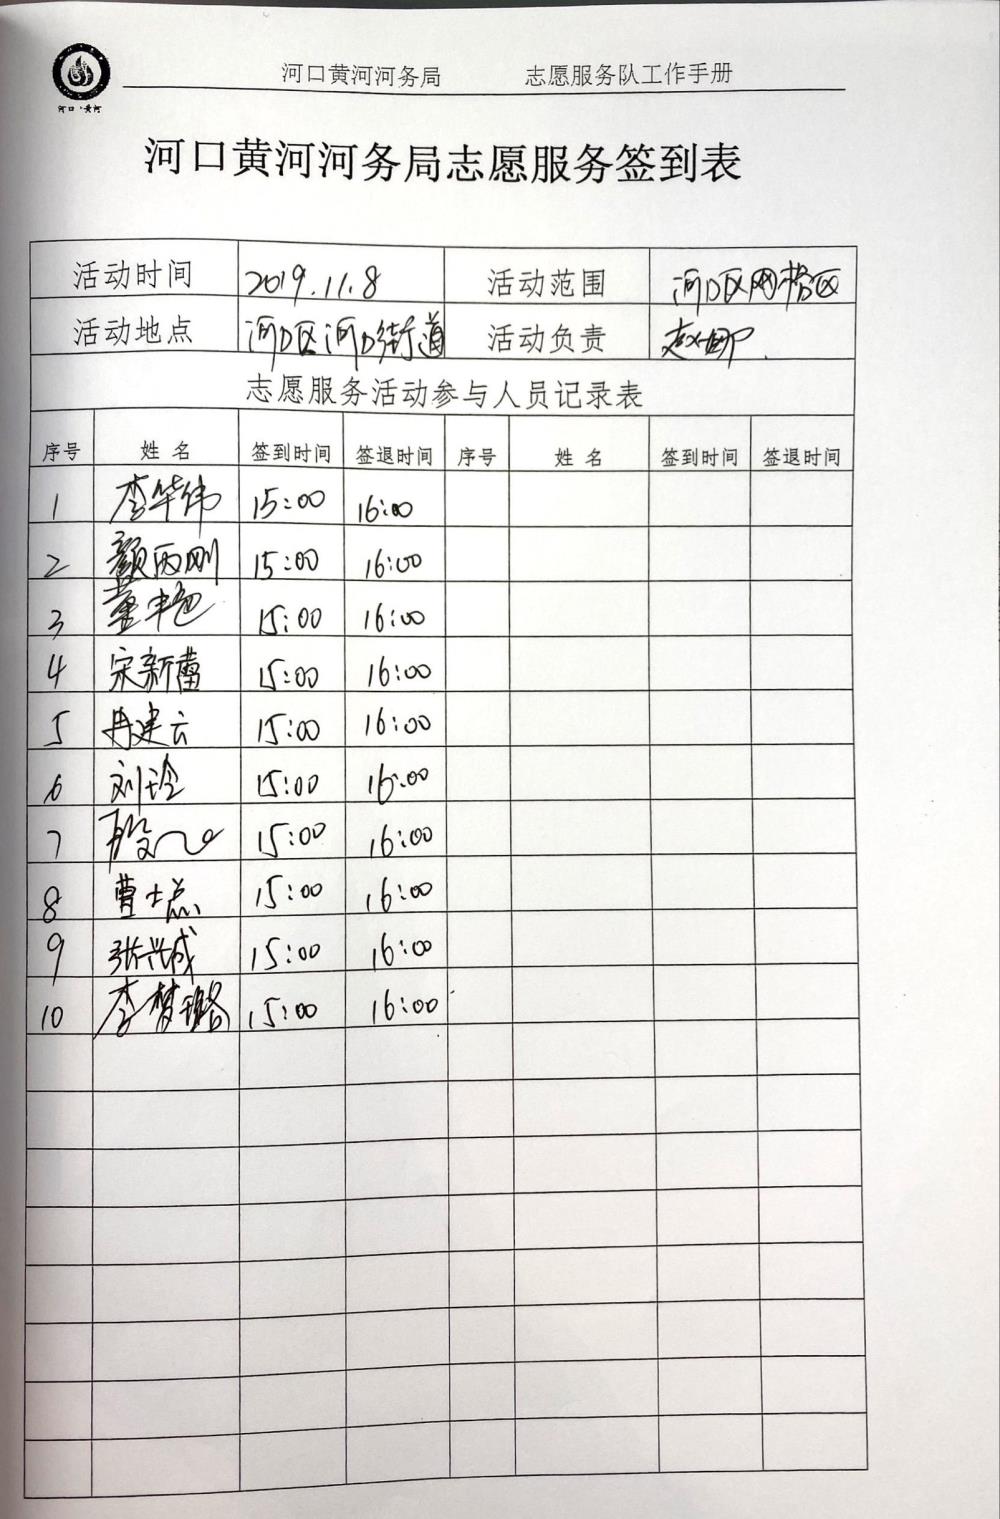 河口·黄河
河口黄河河务局 志愿服务队工作手册
河口黄河河务局志愿服务签到表
活动时间 2019.11.8 活动范围 河口区网格区
活动地点 河口区河口街道 活动负责 赵娜
志愿服务活动参与人员记录表
序号 姓名 签到时间 签退时间 序号 姓名 签到时间 签退时间
1 李华伟 15:00 16:00
2 颜丙刚 15:00 16:00
3 15:00 16:00
4 宋新蕾 15:00 16:00
5 冉建云 15:00 16:00
6 刘玲 15:00 16:00
7 15:00 16:00
8 曹士点 15:00 16:00
9 张兴成 15:00 16:00
10 李梦璐 15:00 16:00